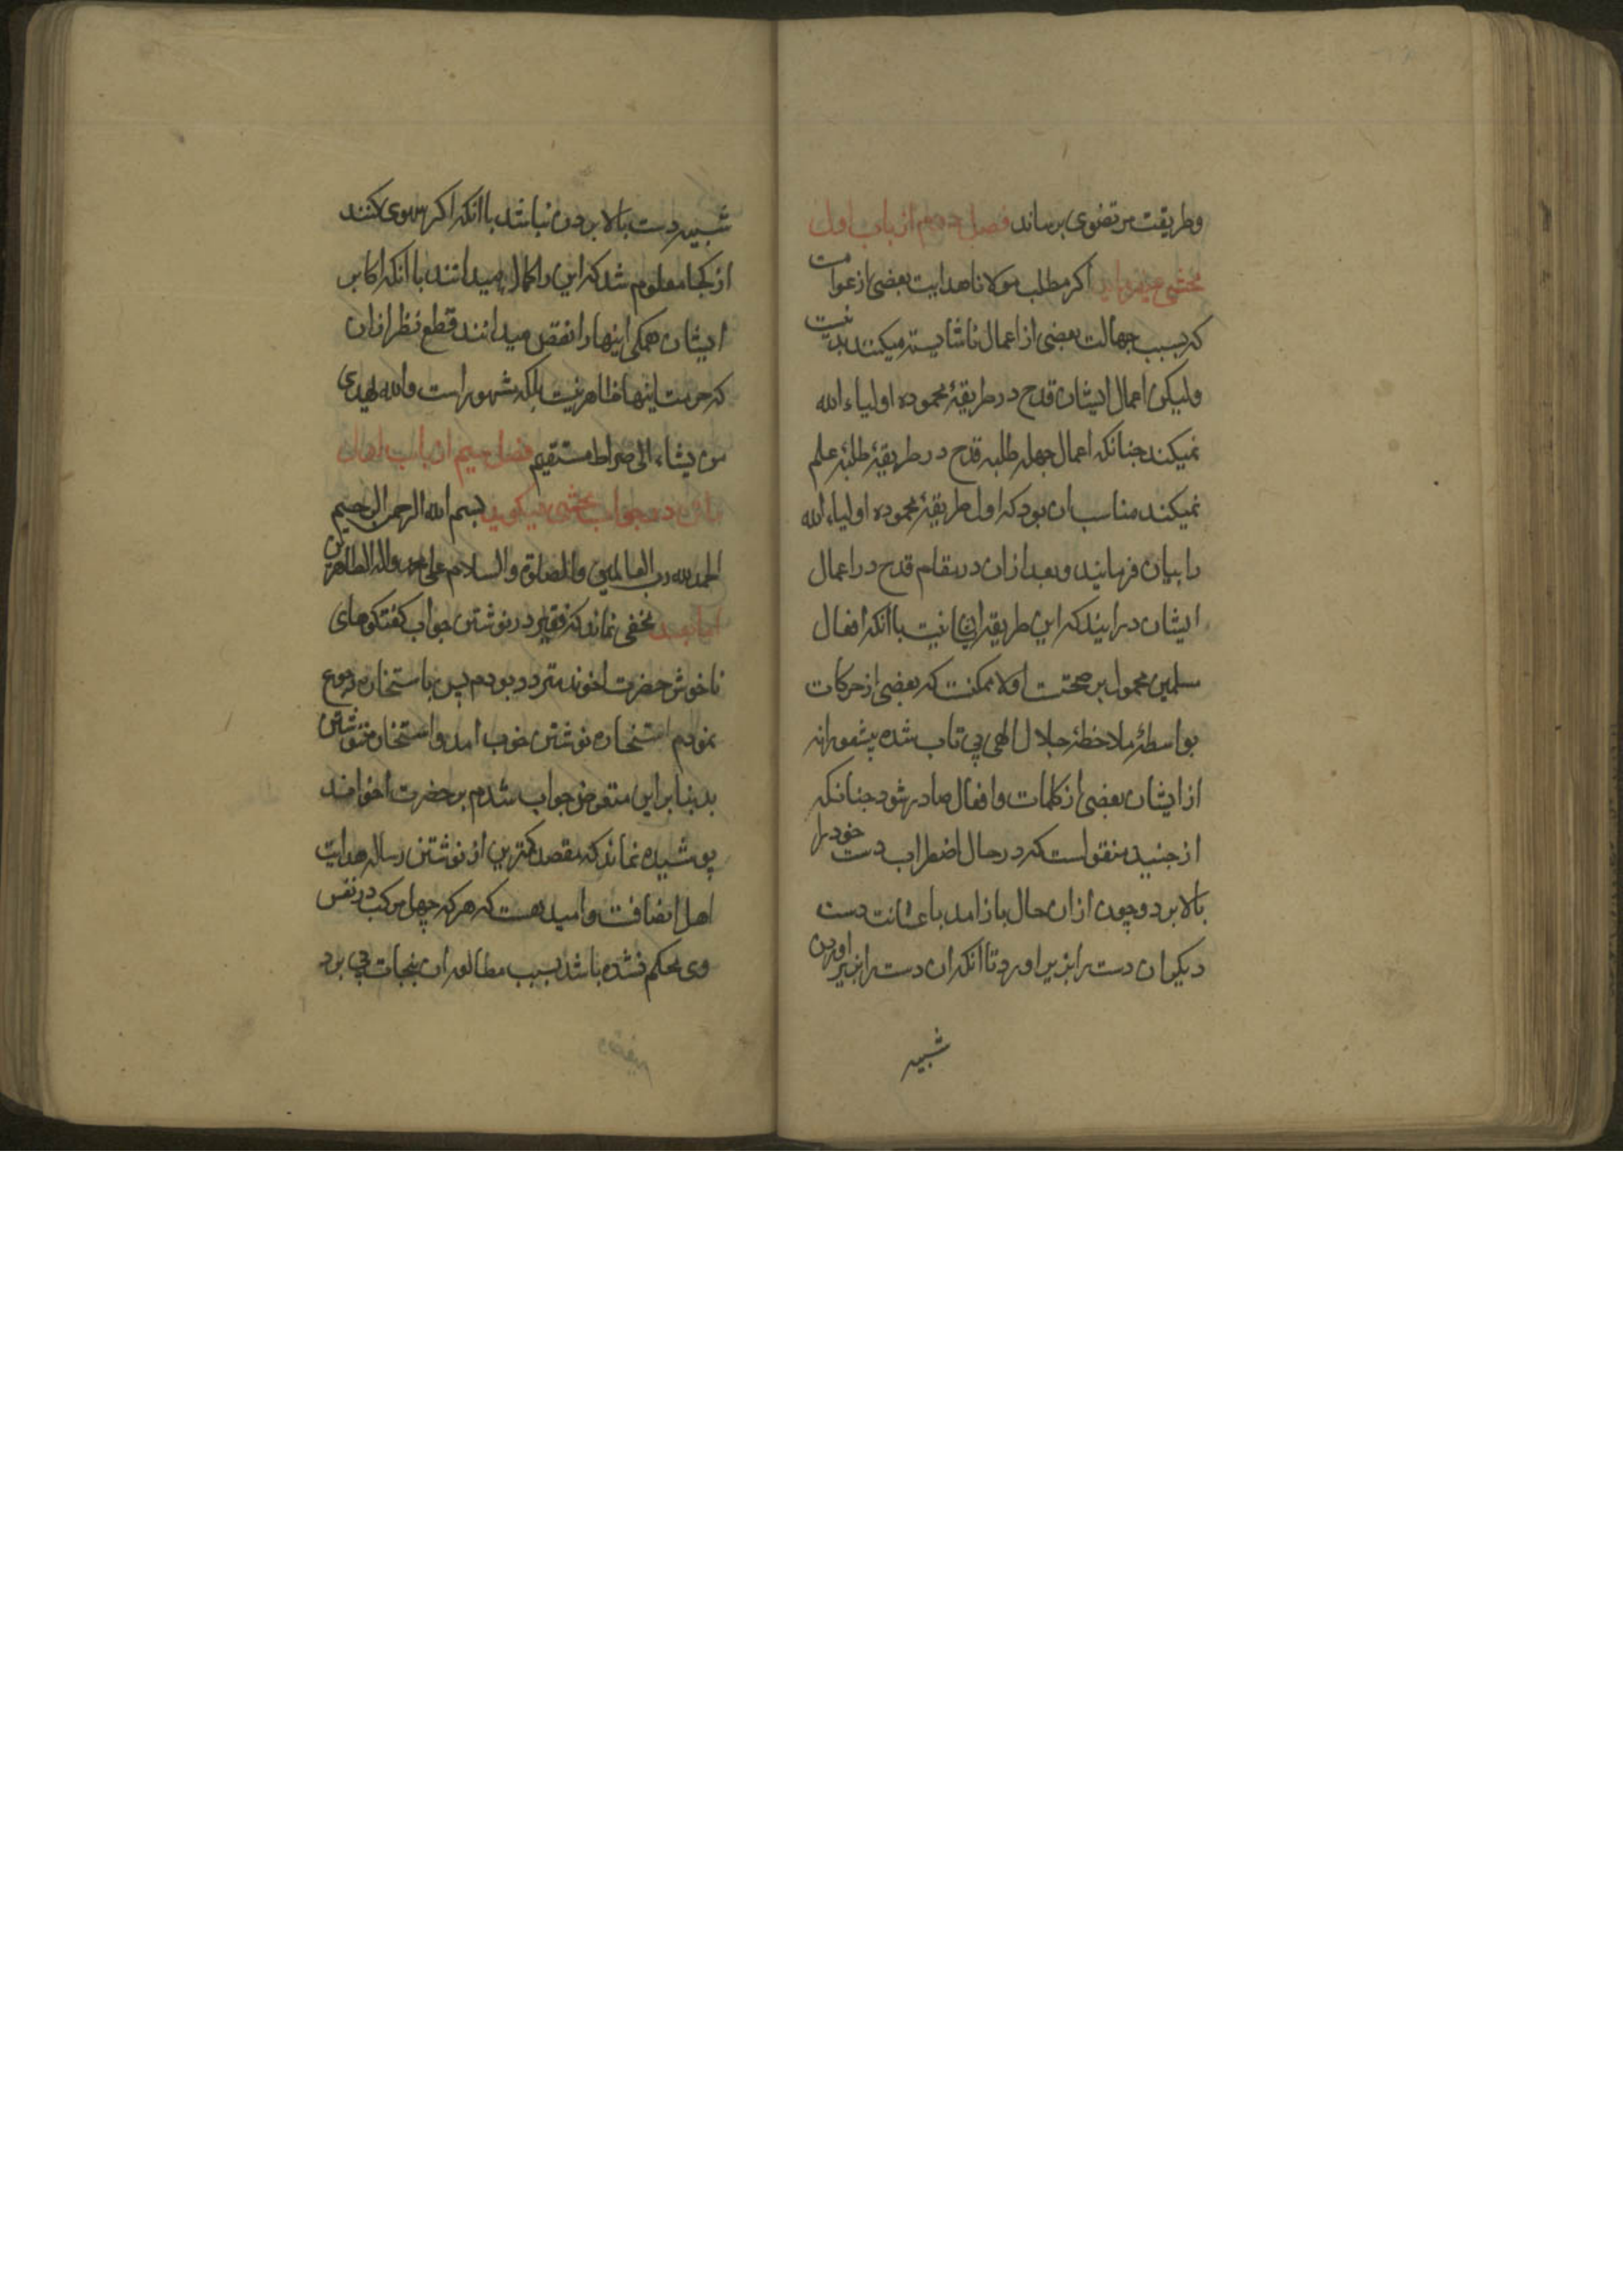 وطریقت مرتضوی برساند فصل دویم از باب اول
محشی میفرماید اکر مطلب مولانا هدایت بعضی از عوامست
که بسبب جهالت بعضی از اعمال ناشایسته میکنند بد نیست
ولیکن اعمال ایشان قدح در طریقهٔ محموده اولیاء الله
نمیکند جنانکه اعمال جهله طلبه قدح در طریقهٔ طلبهٔ علم
نمیکند مناسب ان بود که اول طریقهٔ محموده اولیاء الله
را بیان فرمایند و بعد ازان در مقام قدح در اعمال
ایشان درایند که این طریقه ایشان نیست با انکه افعال
مسلمین محمول بر صحتست اولا ممکنست که بعضی از حرکات
بواسطهٔ ملاحظهٔ جلال الهی بی تاب شده بیشعورانه
از ایشان بعضی از کلمات و افعال صادر شود جنانکه
از جنید منقولست که در حال اضطراب دست خود را
بالا برد و چون ازان حال باز امد باعتانت دست
دیکران دست را بزیر اورد تا انکه ان دست را بزیر اوردن
شبیه
شبیه دست بالا بردن نباشد با انکه اکر سهوی کنند
از کجا معلوم شد که این را کمال میدانند با انکه اکابر
ایشان همکی اینها را نقص میدانند قطع نظر ازان
که حرمت اینها ظاهر نیست بلکه مشهور است والله یهدی
من یشاء الی صراط مستقیم فصل سیم از باب اول
در جواب محشی میکوید بسم الله الرحمن الرحیم
الحمد لله رب العالمین والصلوة والسلام علی محمد واله الطاهرین
اما بعد مخفی نماند که فقیر در نوشتن جواب کفتکوهای
ناخوش حضرت اخوند متردد بودم پس باستخاره رجوع
نمودم استخاره نوشتن خوب امد و استخاره ننوشتن
بد بنابراین متعرض جواب شدم بر حضرت اخوند
پوشیده نماند که مقصد کمترین از نوشتن رساله هدایت
اهل انصافست و امید هست که هر که جهل مرکب در نفس
وی محکم نشده باشد بسبب مطالعه ان بنجات پی برد